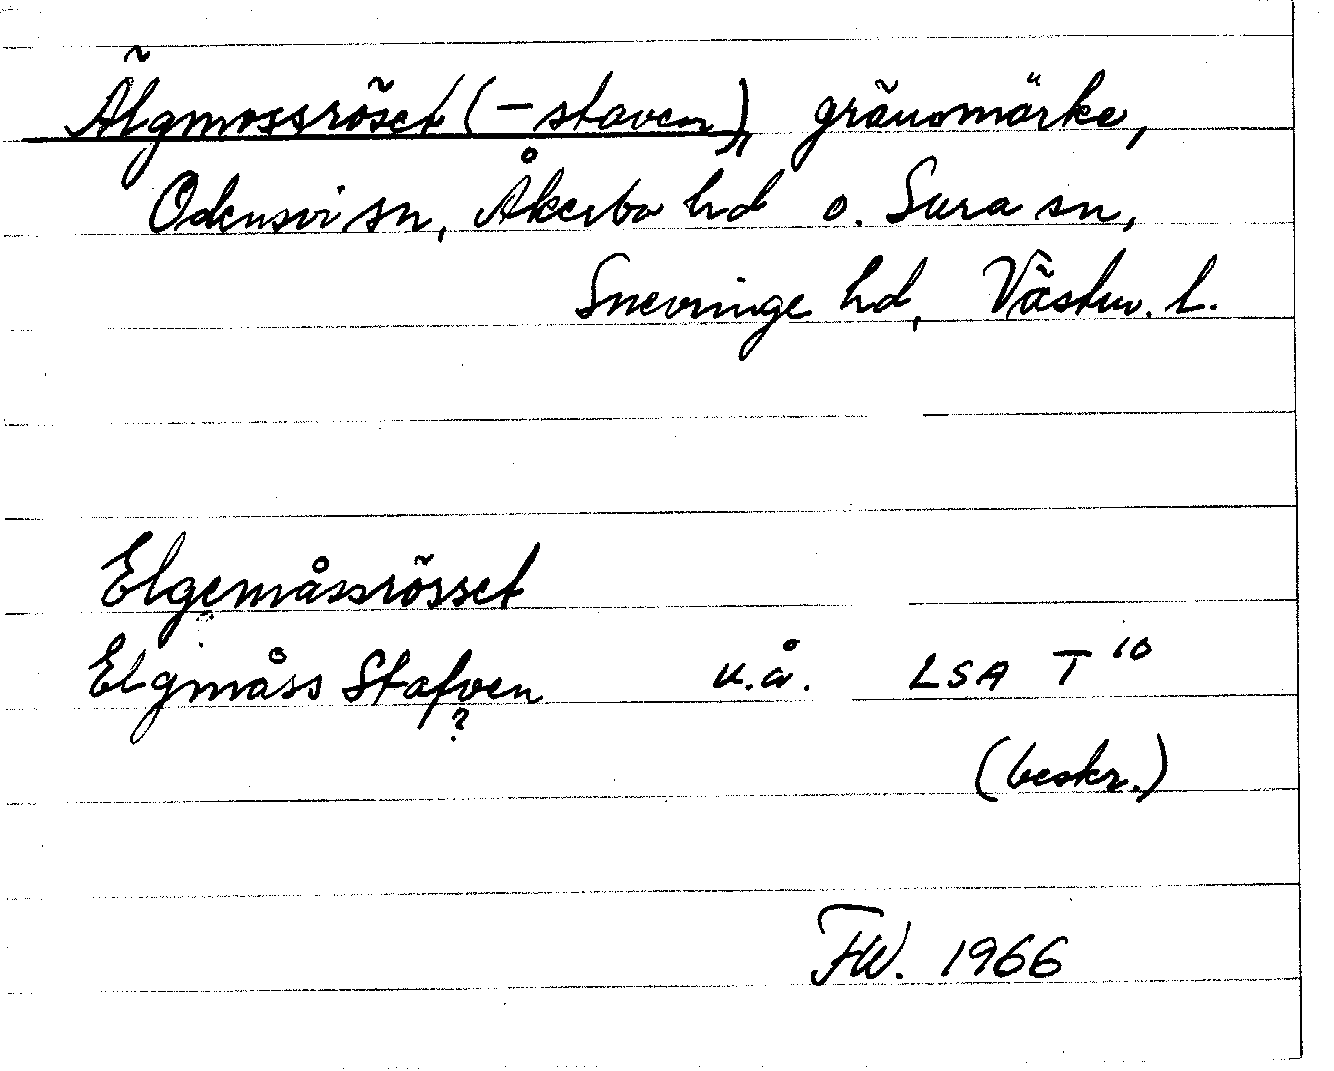 Älgmossröset (-staven), gränsmärke,
Odensvi sn, Åkerbo hd o. Sura sn,
Snevringe hd, Västm. l.
Elgemåssrösset
Elgmåss Stafven u.å. LSA T 10
?
(beskr.)
FW. 1966